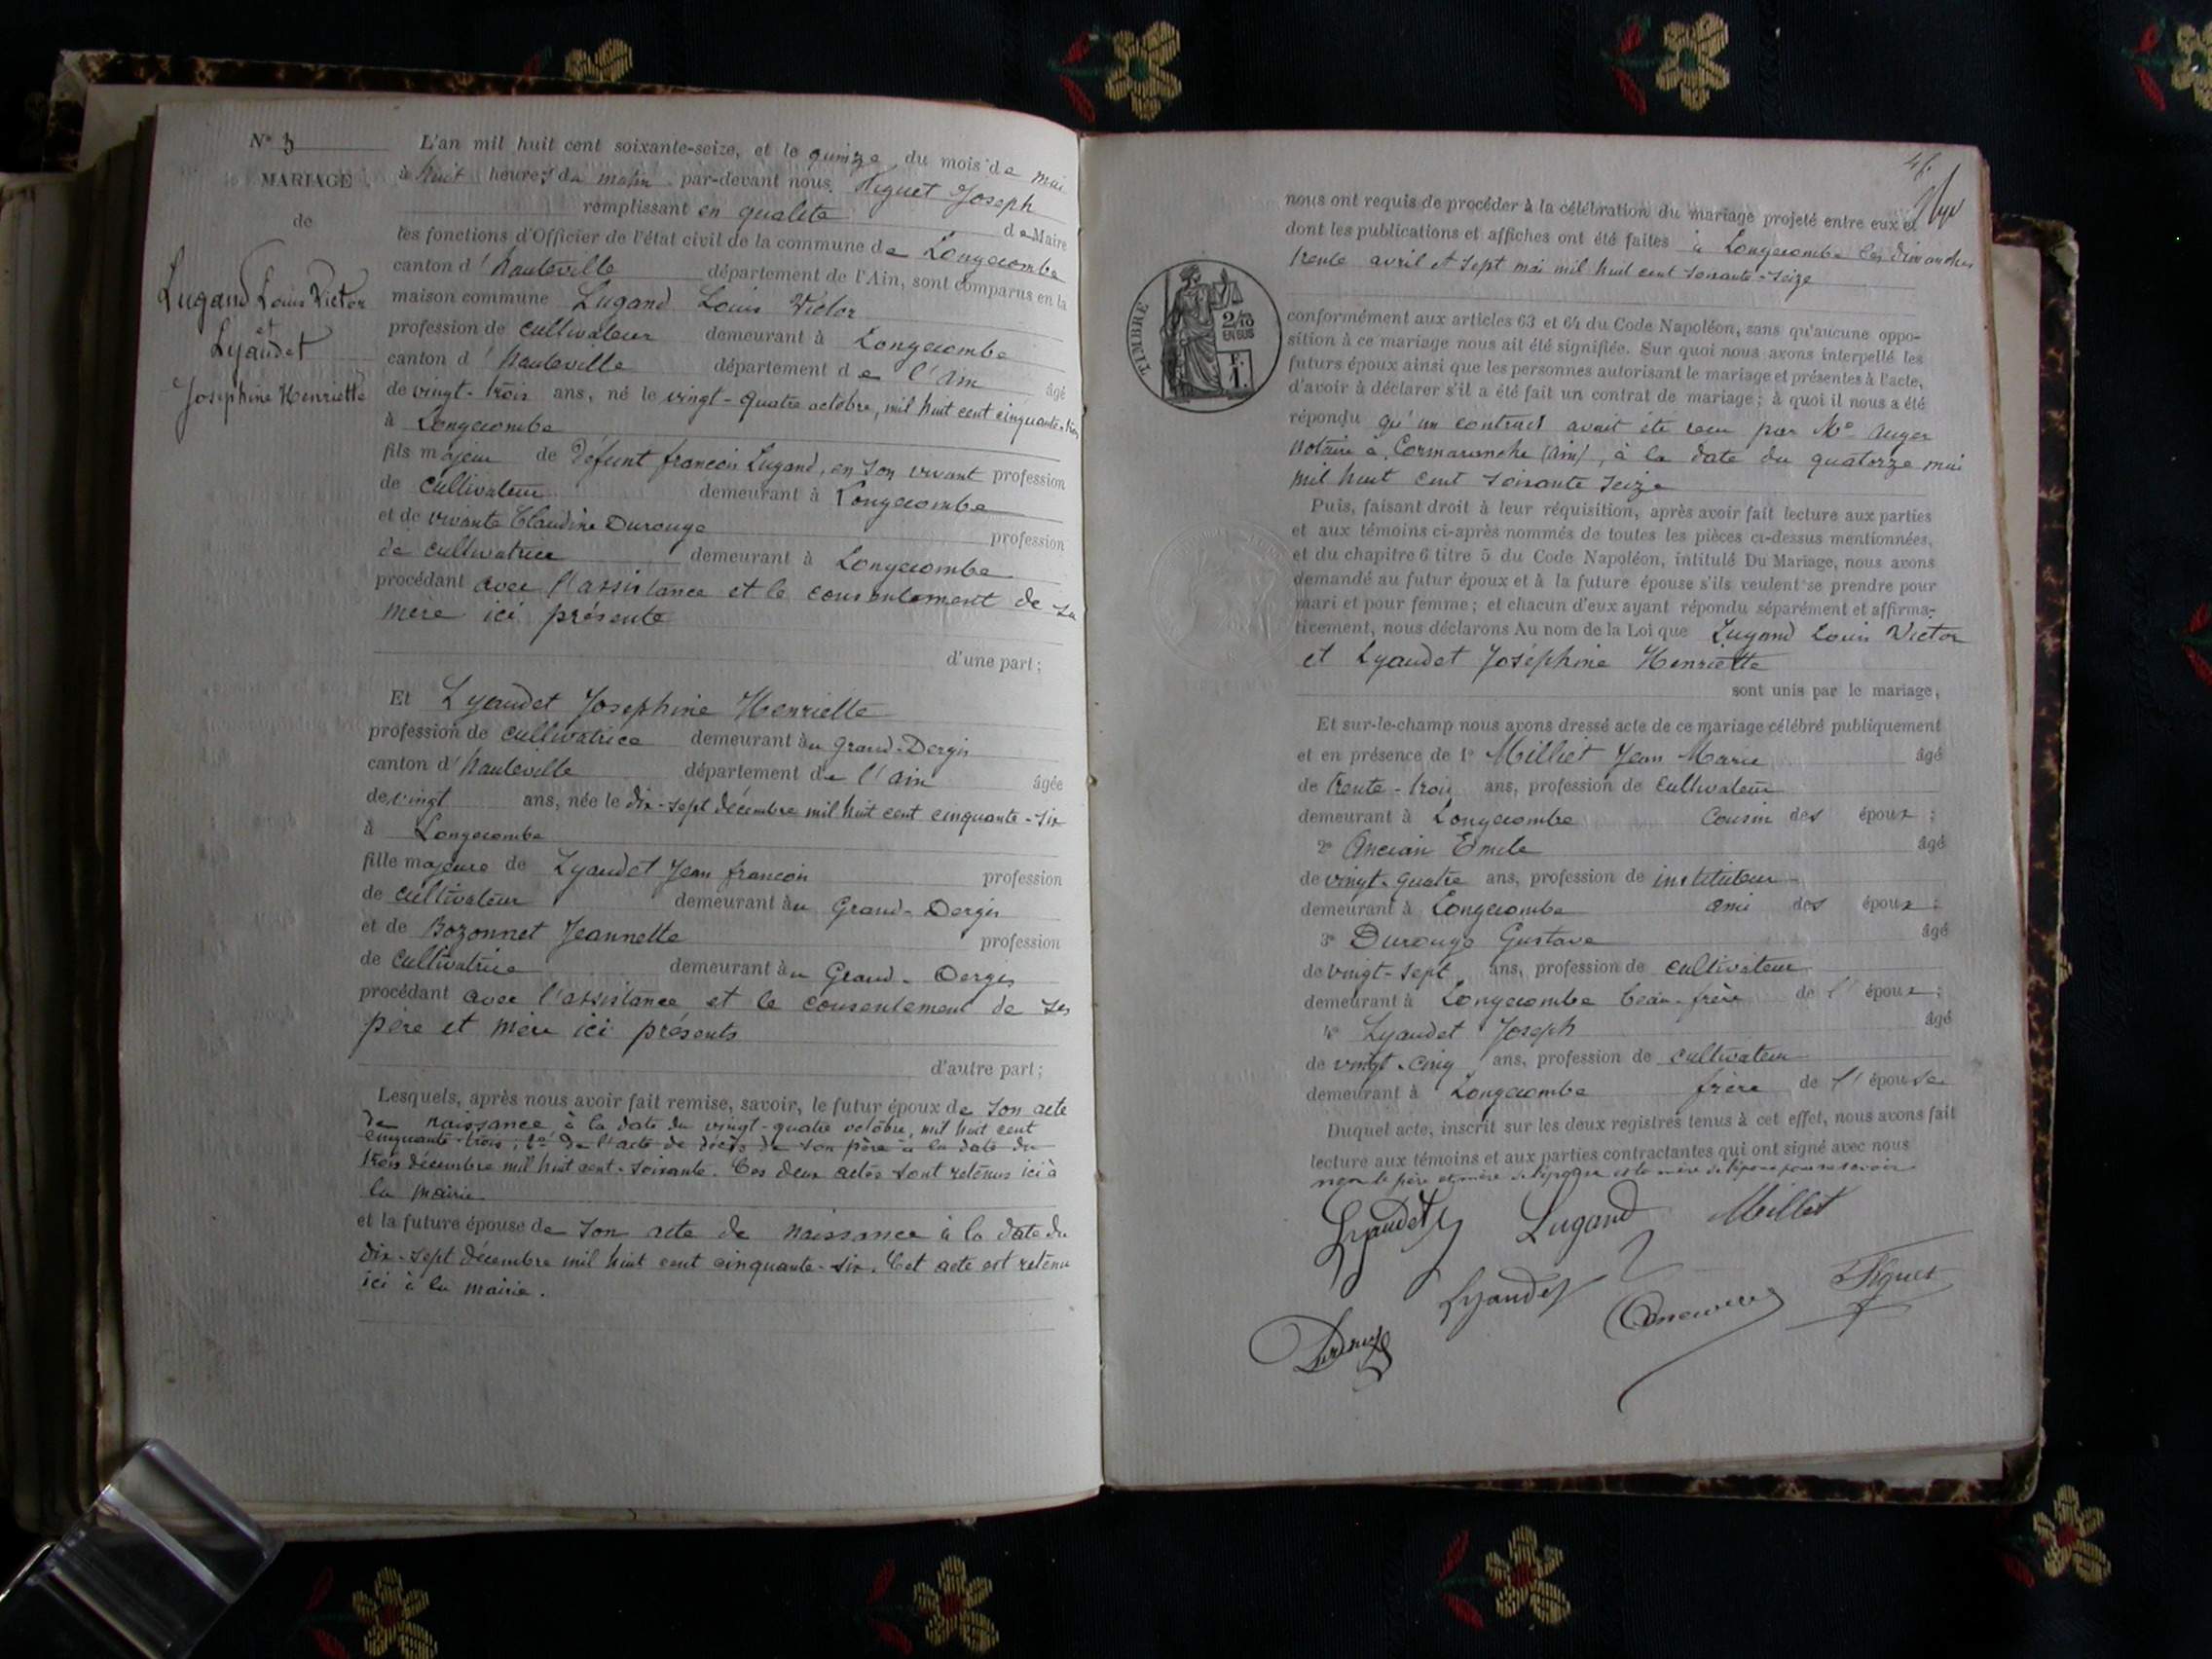 N° 3
MARIAGE
de
Lugand Louis Victor
et
Lyaudet
Josephine Henriette
L'an mil huit cent soixante-seize, et le quinze du mois de mai
à huit heures du matin par-devant nous, Figuet Joseph
remplissant en qualité de Maire
les fonctions d'Officier de l'état civil de la commune de Longecombe
canton d'hauteville département de l'Ain, sont comparus en la
maison commune Lugand Louis Victor
profession de cultivateur demeurant à Longecombe
canton d'hauteville département de l'Ain âgé
de vingt-trois ans, né le vingt-quatre octobre, mil huit cent cinquante-trois
à Longecombe
fils majeur de Défunt francois Lugand, en son vivant profession
de cultivateur demeurant à Longecombe
et de vivante Claudine Durouge profession
de cultivatrice demeurant à Longecombe
procédant avec l'assistance et le consentement de sa
mère ici présente
d'une part;
Et Lyaudet Josephine Henriette
profession de cultivatrice demeurant au Grand-Dergis
canton d'hauteville département de l'ain âgée
de vingt ans, née le dix-sept décembre mil huit cent cinquante-six
à Longecombe
fille majeure de Lyaudet Jean francois profession
de cultivateur demeurant au Grand-Dergis
et de Bozonnet Jeannette profession
de cultivatrice demeurant au Grand-Dergis
procédant avec l'assistance et le consentement de ses
père et mère ici présents
d'autre part;
Lesquels, après nous avoir fait remise, savoir, le futur époux de son acte
de naissance à la date du vingt-quatre octobre, mil huit cent
cinquante-trois; 2° de l'acte de décès de son père à la date du
trois décembre mil huit cent-soixante. Ces deux actes sont retenus ici à
la mairie
et la future épouse de son acte de naissance à la date du
dix-sept décembre mil huit cent cinquante-six. Cet acte est retenu
ici à la mairie.
46
nous ont requis de procéder à la célébration du mariage projeté entre eux et
dont les publications et affiches ont été faites à Longecombe les dimanches
trente avril et sept mai mil huit cent soixante-seize
TIMBRE
2/10
EN SUS
F.
1.
conformément aux articles 63 et 64 du Code Napoléon, sans qu'aucune oppo-
sition à ce mariage nous ait été signifiée. Sur quoi nous avons interpellé les
futurs époux ainsi que les personnes autorisant le mariage et présentes à l'acte,
d'avoir à déclarer s'il a été fait un contrat de mariage; à quoi il nous a été
répondu qu'un contrat avait été reçu par Me Auger
notaire à Cormaranche (Ain), à la date du quatorze mai
mil huit cent soixante seize
Puis, faisant droit à leur réquisition, après avoir fait lecture aux parties
et aux témoins ci-après nommés de toutes les pièces ci-dessus mentionnées,
et du chapitre 6 titre 5 du Code Napoléon, intitulé Du Mariage, nous avons
demandé au futur époux et à la future épouse s'ils veulent se prendre pour
mari et pour femme; et chacun d'eux ayant répondu séparément et affirma-
tivement, nous déclarons Au nom de la Loi que Lugand Louis Victor
et Lyaudet Joséphine Henriette
sont unis par le mariage,
Et sur-le-champ nous avons dressé acte de ce mariage célébré publiquement
et en présence de 1° Milliet Jean Marie âgé
de trente-trois ans, profession de cultivateur
demeurant à Longecombe Cousin des époux;
2° Ancian Emile âgé
de vingt-quatre ans, profession de instituteur
demeurant à Longecombe ami des époux;
3° Durouge Gustave âgé
de vingt-sept ans, profession de cultivateur
demeurant à Longecombe beau-frère de l'époux;
4° Lyaudet Joseph âgé
de vingt-cinq ans, profession de cultivateur
demeurant à Longecombe frère de l'épouse
Duquel acte, inscrit sur les deux registres tenus à cet effet, nous avons fait
lecture aux témoins et aux parties contractantes qui ont signé avec nous
non le père et mère de l'épouse et la mère de l'époux pour ne savoir
Lyaudet Lugand Milliet
Lyaudet Figuet